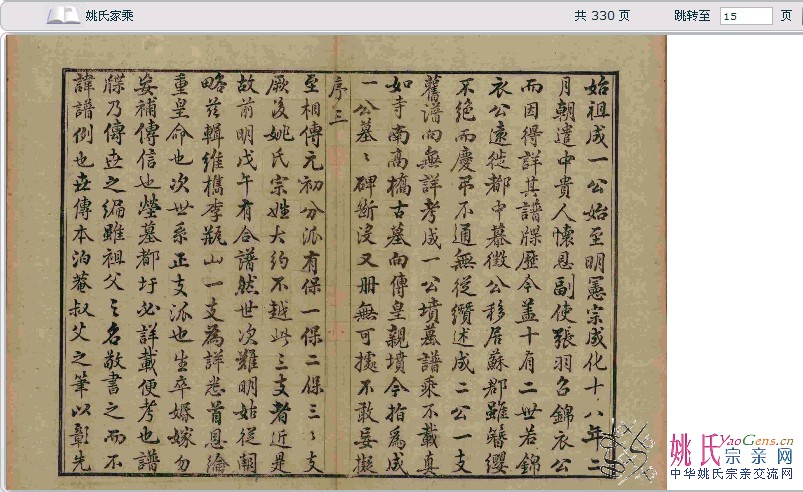 姚氏家乘
共 330 页
跳转至
15
页
始祖成一公始至明憲宗成化十八年二
月朝遣中貴人懷恩副使張羽召錦衣公
而因得詳其譜牒歷今蓋十有二世若錦
衣公遠徙都中慕徵公移居蘇郡雖簪纓
不絕而慶弔不通無從纘述成二公一支
舊譜向無詳考成一公墳墓譜乘不載真
如寺南高橋古墓向傳皇親墳今指爲成
一公墓〻碑斷沒又冊無可據不敢妄擬
序三
至相傳元初分派有保一保二保三〻支
厥後姚氏宗姓大約不越此三支者近是
故前明戊午有合譜然世次難明姑從闕
略茲輯維檇李瓶山一支為詳悉首恩綸
重皇命也次世系正支派也生卒婚嫁勿
妄補傳信也塋墓都圩必詳載便考也譜
牒乃傳世之編雖祖父之名敬書之而不
諱譜例也世傳本泊菴叔父之筆以彰先
姚氏YaoGens.cn
宗亲网
中华姚氏宗亲交流网